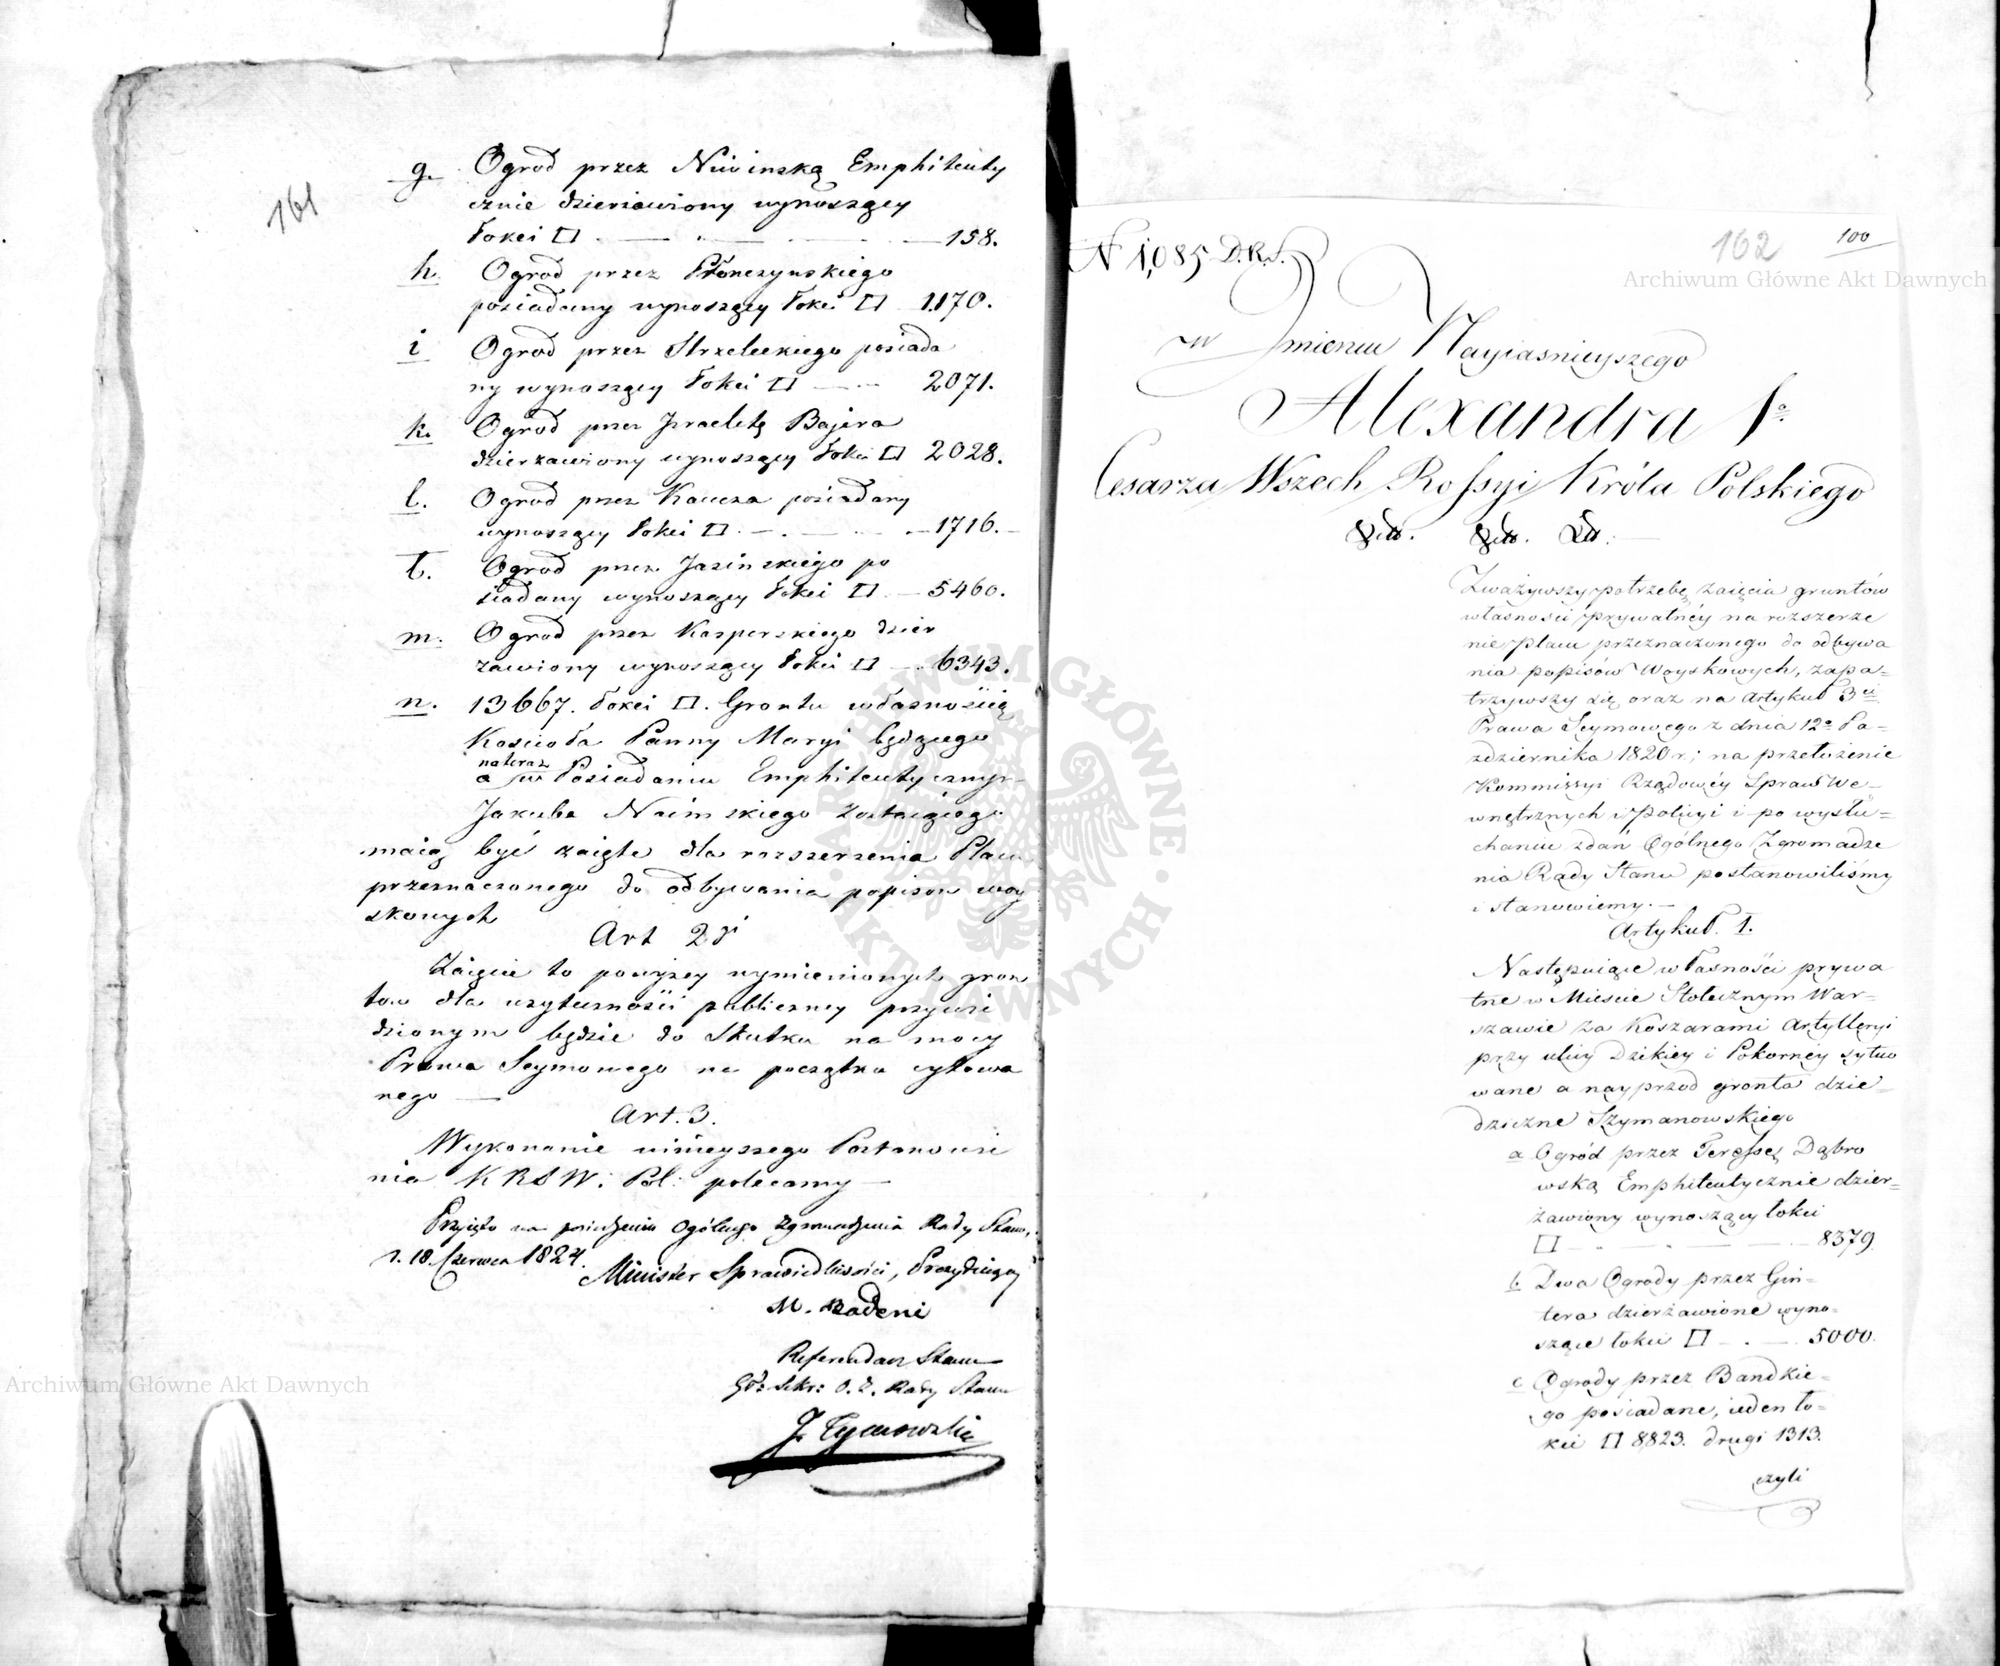 161
g. Ogrod przez Niwinską Emphiteuty
cznie dzierżawiony wynoszący
Łokci □ 158.
h. Ogrod przez Płonczynskiego
posiadany wynoszący Łokci □ 1170.
i Ogrod przez Strzeleckiego posiada
ny wynoszący Łokci □ 2071.
k. Ogrod przez Izraelitę Bajera
dzierzawiony wynoszący Łokci □ 2028.
l. Ogrod przez Kaucza posiadany
wynoszący Łokci □ 1716.
ł. Ogrod przez Jasinskiego po
siadany wynoszący Łokci □ 5460.
m. Ogrod przez Kasperskiego dzier
zawiony wynoszący Łokci □ 6343.
n. 13667. Łokci □. Grontu własnością
Koscioła Panny Maryi będącego
nateraz
a w Posiadaniu Emphiteutycznym
Jakuba Naimskiego zostaiącego
maią być zaięte dla rozszerzenia Placu
przeznaczonego do odbywania popisow woy
skowych
Art 2gi
Zaięcie to powyżey wymienionych gron
tow dla uzyteczności publiczney przywie
dzionym będzie do Skutku na mocy
Prawa Seymowego na początku cytowa
nego
Art. 3.
Wykonanie ninieyszego Postanowie
nia KRSW: Pol: polecamy
Przyięto na posiedzeniu Ogólnego Zgromadzenia Rady Stanu,
d. 18. Czerwca 1824.
Minister Sprawiedliwości, Prezyduiący
M. Badeni
Referendarz Stanu
Gł: Sekr: O. Z. Rady Stanu
J. Tymowski
162 100
N 1,085 D.R.S.
w Imieniu Nayiasnieyszego
Alexandra Iº
Cesarza Wszech Rossyi Króla Polskiego
&tt. &tt. &tt.
Zważywszy potrzebę zaięcia gruntów
własności prywatnéy na rozszerze
nie placu przeznaczonego do odbywa
nia popisów Woyskowych, zapa=
trzywszy się oraz na Artykuł 3ci
Prawa Seymowego z dnia 12º Pa=
zdziernika 1820 r; na przełożenie
Kommissyi Rządowéy Spraw We=
wnętrznych i Policyi i po wysłu=
chaniu zdań Ogólnego Zgromadze
nia Rady Stanu postanowiliśmy
i stanowiemy.
Artykuł. 1.
Następuiące własności prywa
tne w Mieście Stołecznym War=
szawie za Koszarami Artylleryi
przy ulicy Dzikiey i Pokornéy sytuo
wane a nayprzod gronta dzie=
dziczne Szymanowskiego
a Ogród przez Teressę Dąbro
wską Emphiteutycznie dzier=
żawiony wynoszący łokci
□ 8379.
b Dwa Ogrody przez Gin=
tera dzierżawione wyno=
szące łokci □ 5000.
c Ogrody przez Bandkie=
go posiadane, ieden ło=
kci □ 8823. drugi 1313.
czyli
Archiwum Główne Akt Dawnych
Archiwum Główne Akt Dawnych
ARCHIWUM GŁÓWNE · AKT DAWNYCH ·